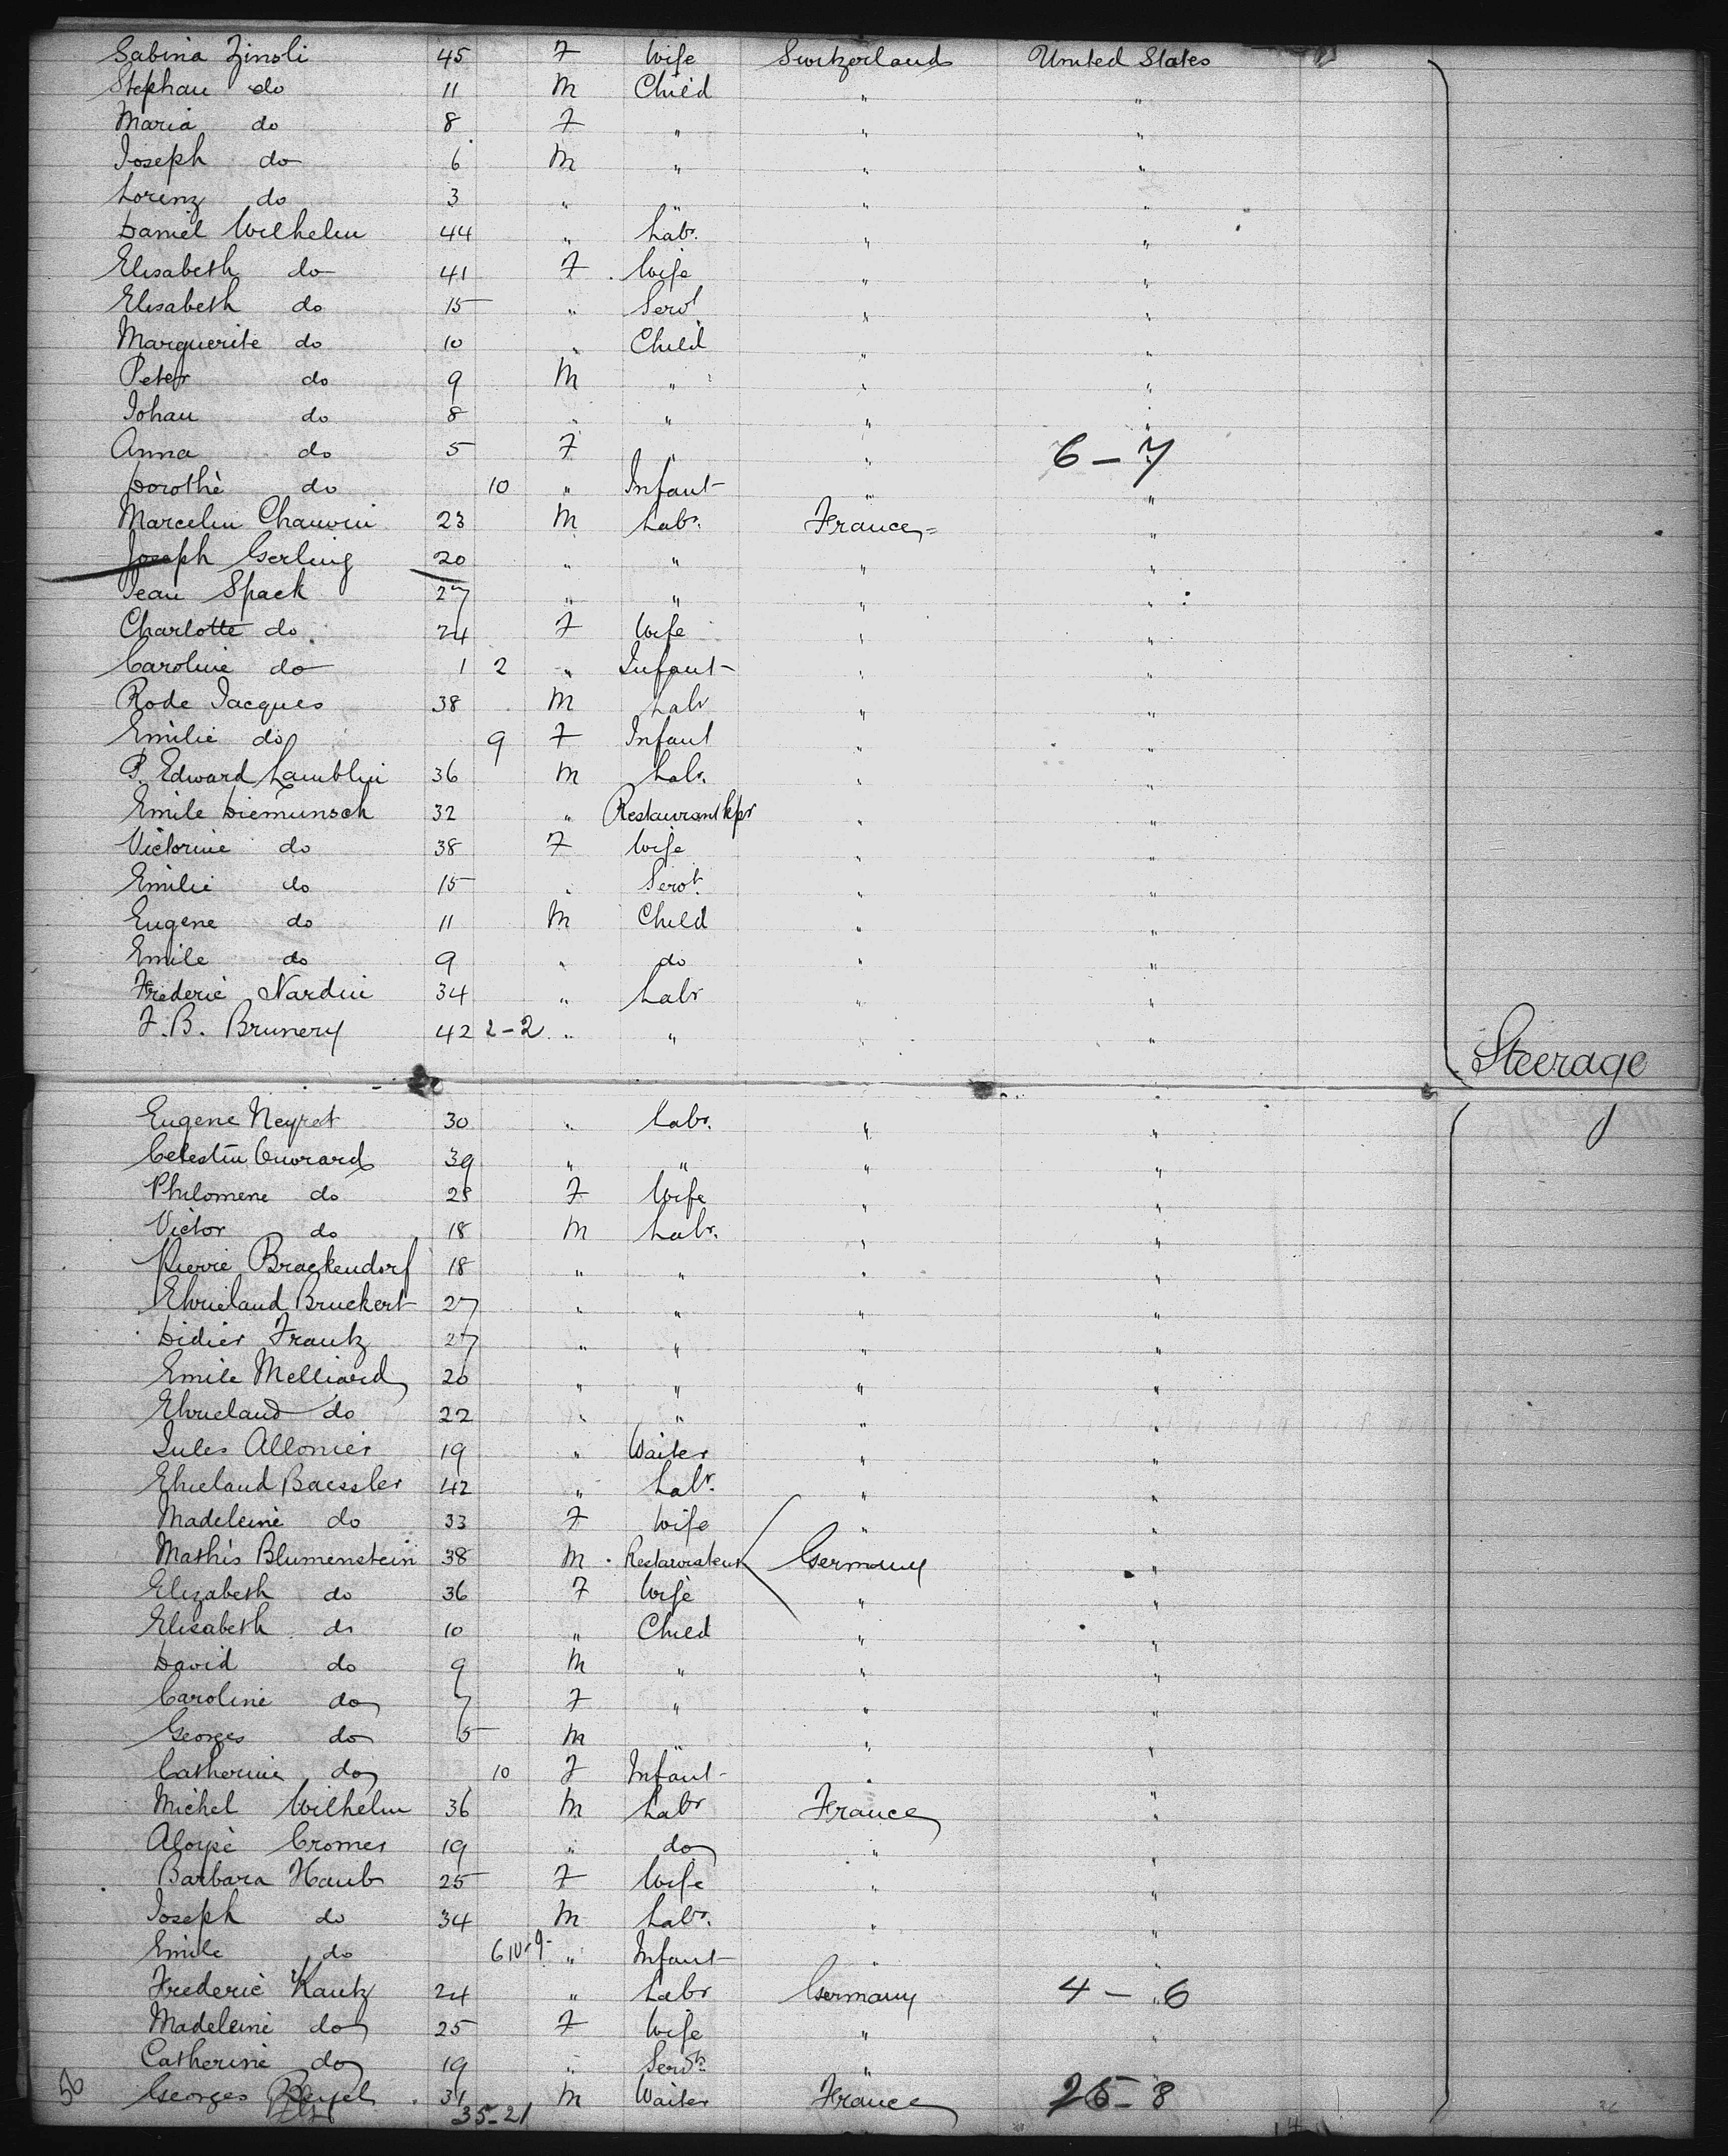 Sabina Zinsli 45 F Wife Switzerland United States
Stephan do 11 M Child " "
Maria do 8 F " " "
Joseph do 6 M " " "
Lorenz do 3 " " " "
Daniel Wilhelm 44 " Labr. " "
Elisabeth do 41 F Wife " "
Elisabeth do 15 " Servt " "
Marguerite do 10 " Child " "
Peter do 9 M " " "
Johan do 8 " " " "
Anna do 5 F " " 6-7
Dorothè do 10 " Infant " "
Marcelin Chauvin 23 M Labr. France "
Joseph Gerling 20 " " " "
Jean Spack 27 " " " "
Charlotte do 24 F Wife " "
Caroline do 1 2 " Infant " "
Rode Jacques 38 M Labr " "
Emilie do 9 F Infant " "
P. Edward Lamblin 36 M Labr. " "
Emile Diemunsch 32 " Restaurantkpr " "
Victorine do 38 F Wife " "
Emilie do 15 " Servt. " "
Eugene do 11 M Child " "
Emile do 9 " do " "
Frederic Nardin 34 " Labr " "
J. B. Brunery 42 2-2 " " " "
Steerage
Eugene Neyret 30 " Labr. " "
Celestin Cuvrard 39 " " " "
Philomene do 28 F Wife " "
Victor do 18 M Labr. " "
Pierre Brackendorf 18 " " " "
Bruckert 27 " " " "
Didier Frantz 27 " " " "
Emile Melliard 26 " " " "
do 22 " " " "
Jules Allonier 19 " Waiter " "
Baessler 42 " Labr. " "
Madeleine do 33 F Wife " "
Mathis Blumenstein 38 M Restaurateur Germany "
Elizabeth do 36 F Wife " "
Elisabeth do 10 " Child " "
David do 9 M " " "
Caroline do 7 F " " "
Georges do 5 M " " "
Catherine do 10 F Infant " "
Michel Wilhelm 36 M Labr France "
Aloysè Cromer 19 " do " "
Barbara Haub 25 F Wife " "
Joseph do 34 M Labr. " "
Emile do 6 " Infant " "
Frederic Kautz 24 " Labr Germany 4-6
Madeleine do 25 F Wife " "
Catherine do 19 " Servt. "
50 Georges 31 M Waiter France 26-8
35-21